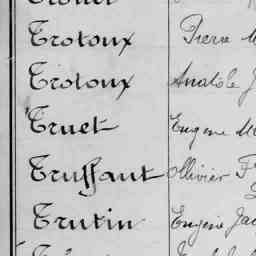 Trotoux Pierre
Trotoux Anatole J
Truet Eugène M
Truffaut Ollivier F
Trutin Eugène Jac